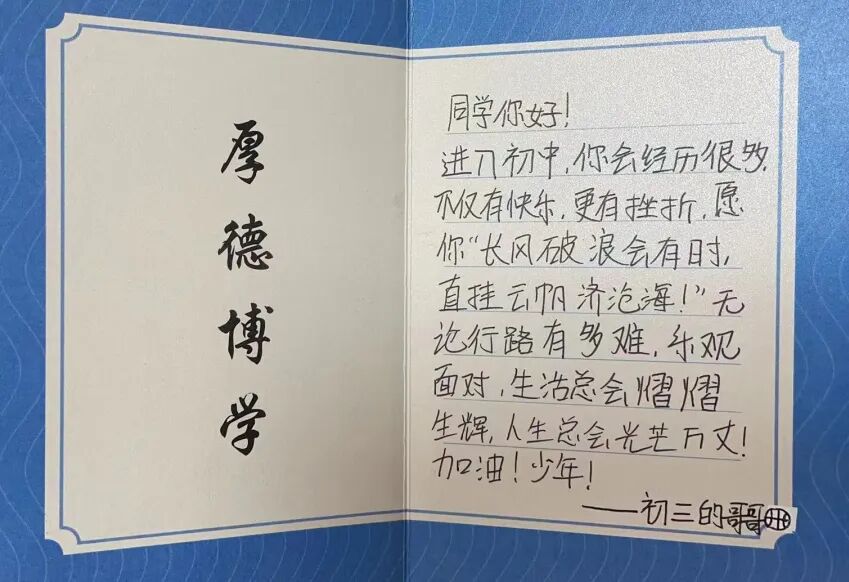 厚德博学
同学你好!
进入初中,你会经历很多,
不仅有快乐,更有挫折,愿
你“长风破浪会有时,
直挂云帆济沧海!”无
论行路有多难,乐观
面对,生活总会熠熠
生辉,人生总会光芒万丈!
加油!少年!
——初三的哥哥